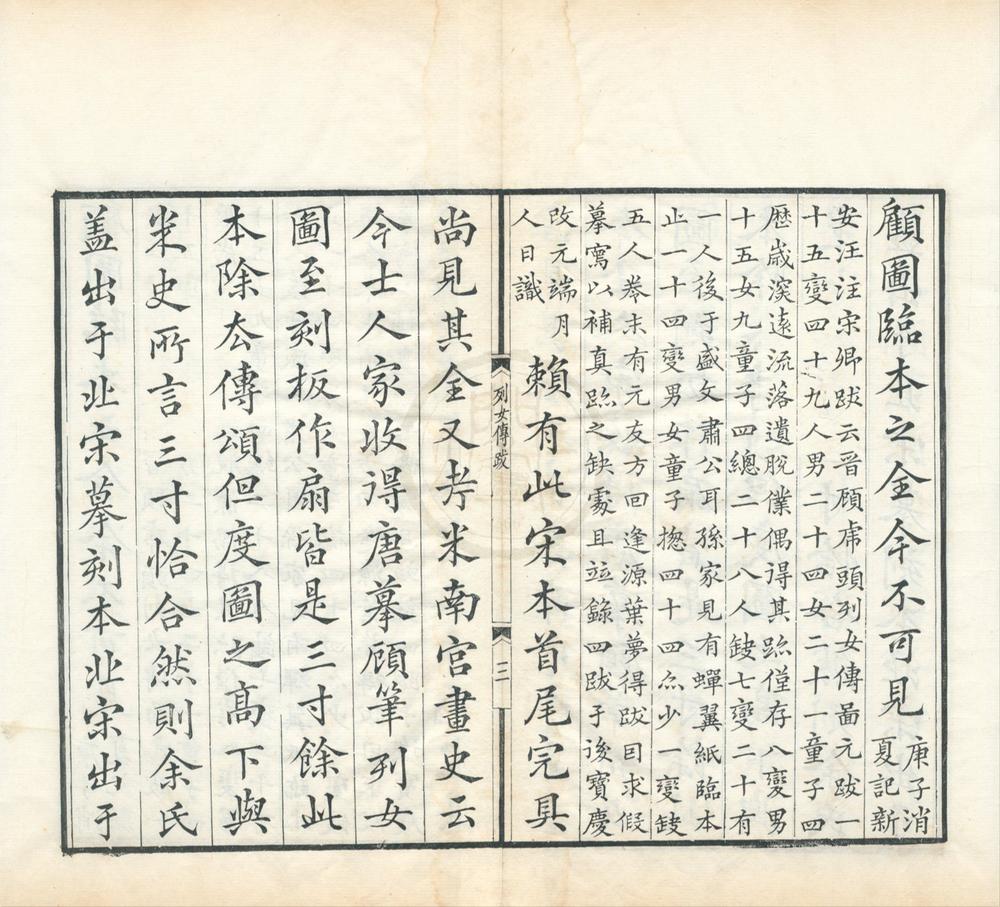 顧圖臨本之全今不可見
庚子消
夏記新
安汪注宋卿跋云晋顧虎頭列女傳啚元跋一
十五變四十九人男二十四女二十一童子四
歷歳深遠流落遺脫僕偶得其跡僅存八變男
十五女九童子四總二十八人鈌七變二十有
一人後于盛文肅公耳孫家見有蟬翼紙臨本
止一十四變男女童子揔四十四亦少一變鈌
五人卷末有元友方回逢源葉夢得跋因求假
摹寫以補真跡之缺䖏且竝錄四跋于後寶慶
改元端月
人日識
賴有此宋本首尾完具
列女傳跋
三
尚見其全又考米南宮畫史云
今士人家收得唐摹顧筆列女
圖至刻板作扇皆是三寸餘此
本除去傳頌但度圖之高下與
米史所言三寸恰合然則余氏
盖出于北宋摹刻本北宋出于